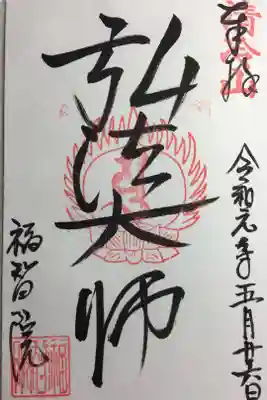 奉拝
令和元年五月廿六日
弘法大師
福智院